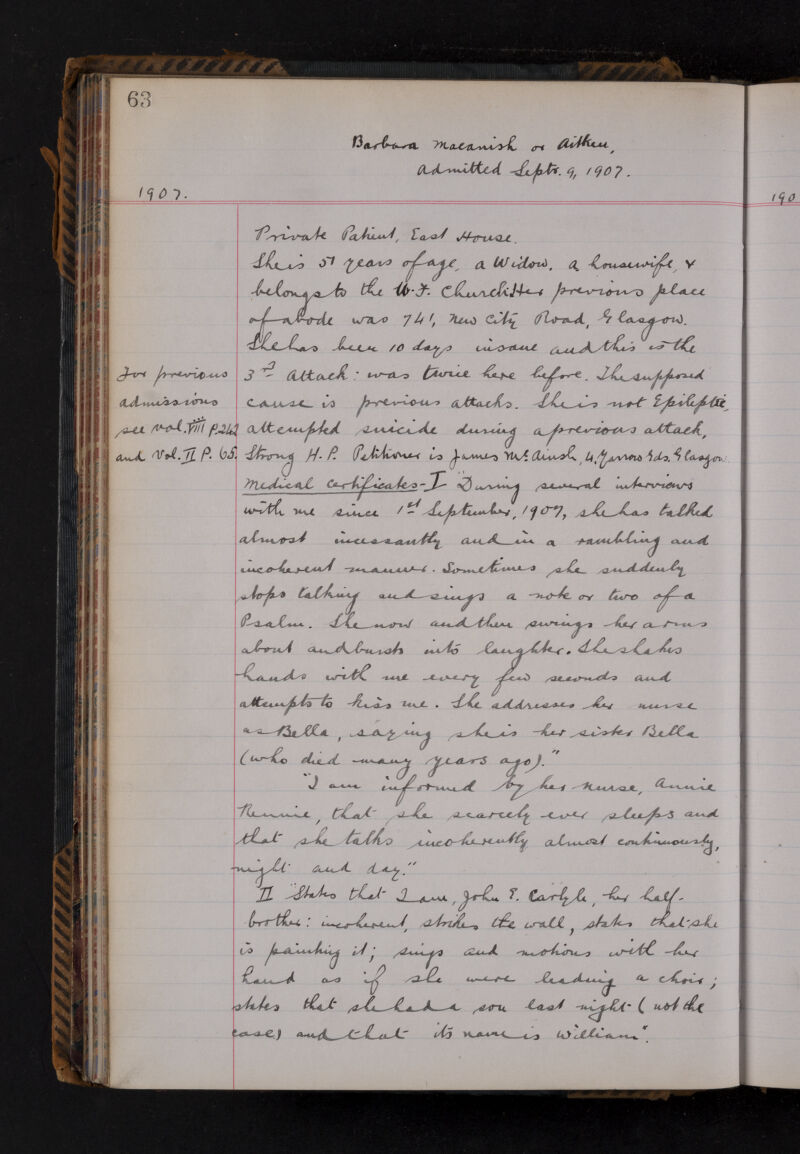 63
Barbara Macanish or Aitken,
Admitted Septr. 9, 1907.
1907.
190
Private Patient, East House.
She is 51 years of age, a Widow, a housewife, &
belongs to the U.F. Church. Her previous place
of abode was 741, New City Road, Glasgow.
She has been 10 days insane and this is the
3rd Attack: was twice here before. The supposed
cause is previous attacks. She is not Epileptic,
attempted suicide during a previous attack,
Strong H.P. Petitioner is James McAinsh, 4, Yarrow Gds. Glasgow.
For previous
admissions
see Vol. VIII P.242
and Vol. II P. 65.
Medical Certificates - I "During several interviews
with me since 1st September, 1907, she has talked
almost incessantly and in a rambling and
incoherent manner. Sometimes she suddenly
stops talking and sings a note or two of a
Psalm. She now and then swings her arms
about and bursts into laughter. She shakes
hands with me every few seconds and
attempts to kiss me. She addresses her nurse
as Bella, saying she is her sister Bella
(who died many years ago)."
"I am informed by her nurse, Annie
Rennie, that she scarcely ever sleeps and
that she talks incoherently almost continuously,
night and day."
II "States that I am, John E. Carlyle, her half-
brother: incoherent, strikes the wall, states that she
is painting it; sings and motions with her
hand as if she were leading a choir;
states that she had a son last night (not the
case) and that its name is William".